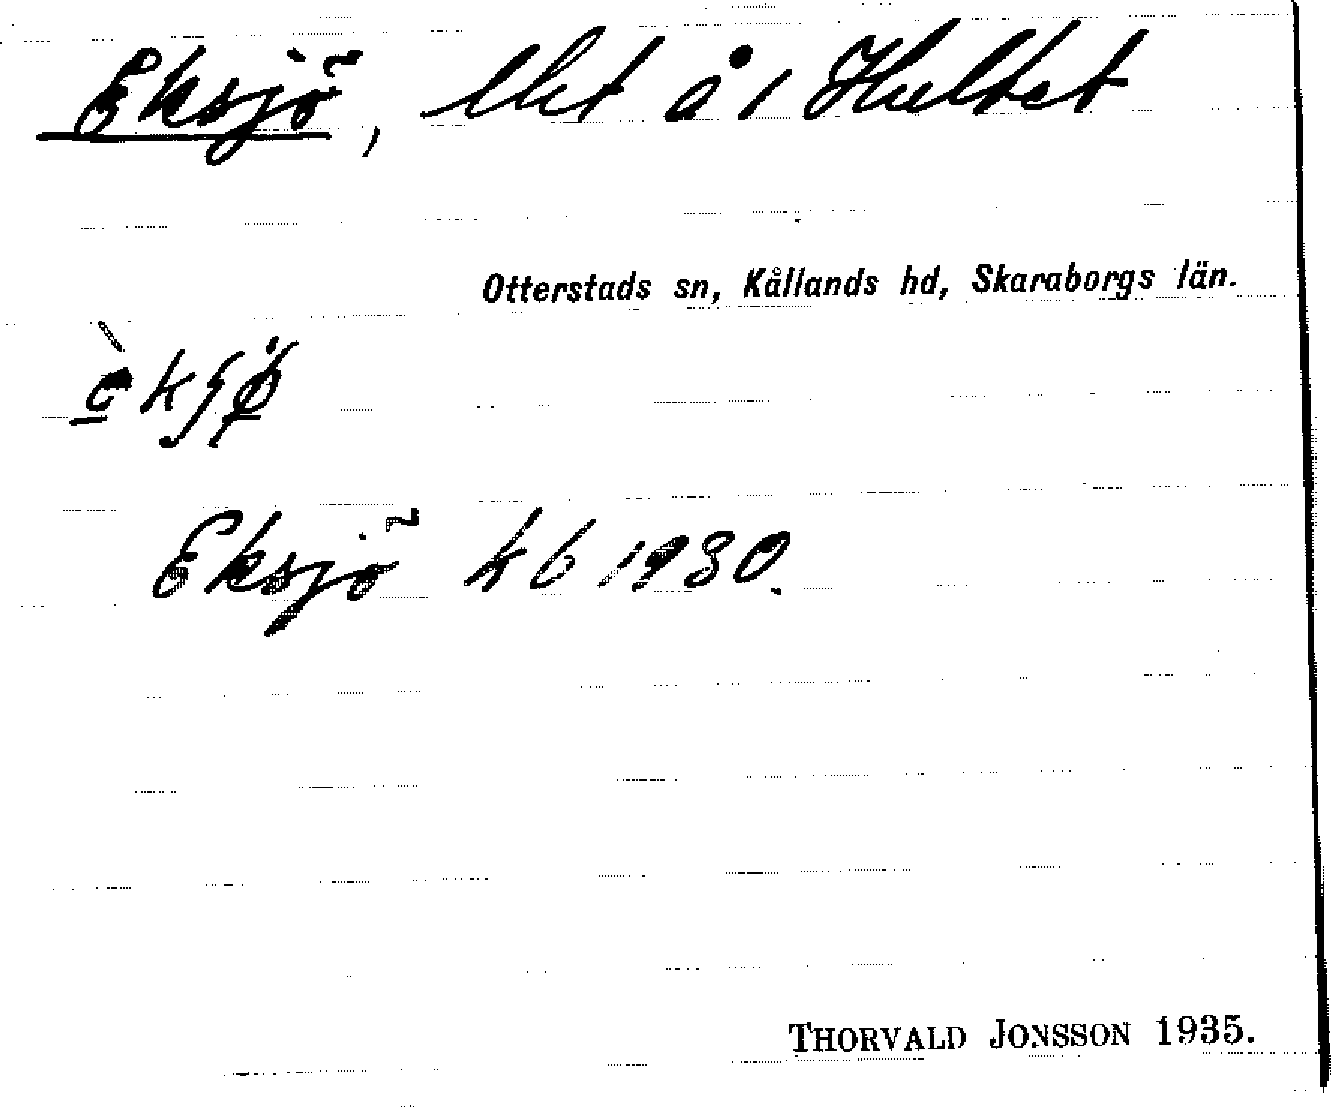 Eksjö, lht å 1 Hultet
Otterstads sn, Kållands hd, Skaraborgs län.
Eksjö kb 1930.
THORVALD JONSSON 1935.